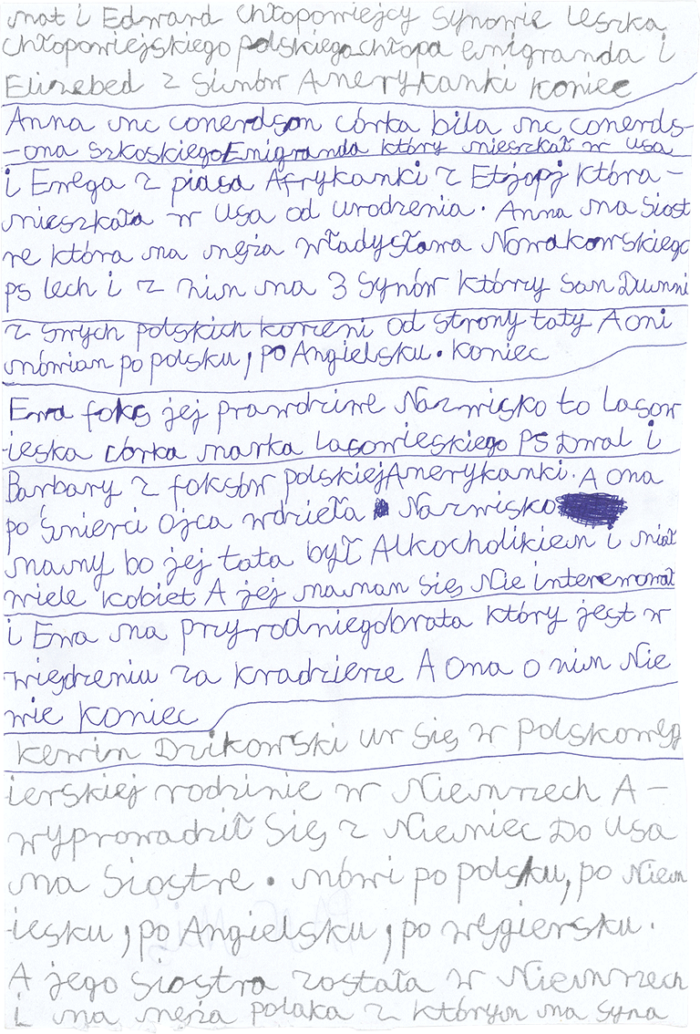 mat i Edward Chłopowiejcy Synowie leszka
Chłopowiejskiego polskiegochłopa emigranda i
Elizebed z Siunów Amerykanki koniec
Anna mc conerdson córka bila mc conerds-
-ona szkoskiegoEmigranda który mieszkał w usa
i Enega z piasa Afrykanki z Etjopj która-
mieszkała w usa od urodzenia. Anna ma siost
re która ma męża władysława Nowakowskiego
ps lech i z nim ma 3 synów którzy san Dumni
z swych polskich korzeni od strony taty A oni
mówian po polsku, po Angielsku. koniec
Ewa foks jej prawdziwe Nazwisko to lasow
ieska córka marka lasowieskiego PS Dwal i
Barbary z foksów polskiejAmerykanki. A ona
po śmierci ojca wdzieła Nazwisko
mamy bo jej tata był Alkocholikiem i miał
wiele kobiet A jej mamam się Nie interemował
i Ewa ma przyrodniegobrata który jest w
więdzeniu za kradzierze A Ona o nim Nie
wie koniec
kewin Dzikowski ur się w polskowęg
ierskiej rodzinie w Niemrzech A-
wyprowadził się z Niemiec Do usa
ma siostre. mówi po polsku, po Niem
-iesku, po Angielsku, po węgiersku.
A jego siostra została w Niemrzech
i ma męża polaka z którym ma syna